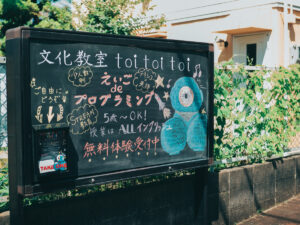 文化教室 toitoitoi♪
ご自由に
どうぞ
えいご
de
プログラミング
5才〜OK!
授業は ALLイングリッシュ
無料体験受付中